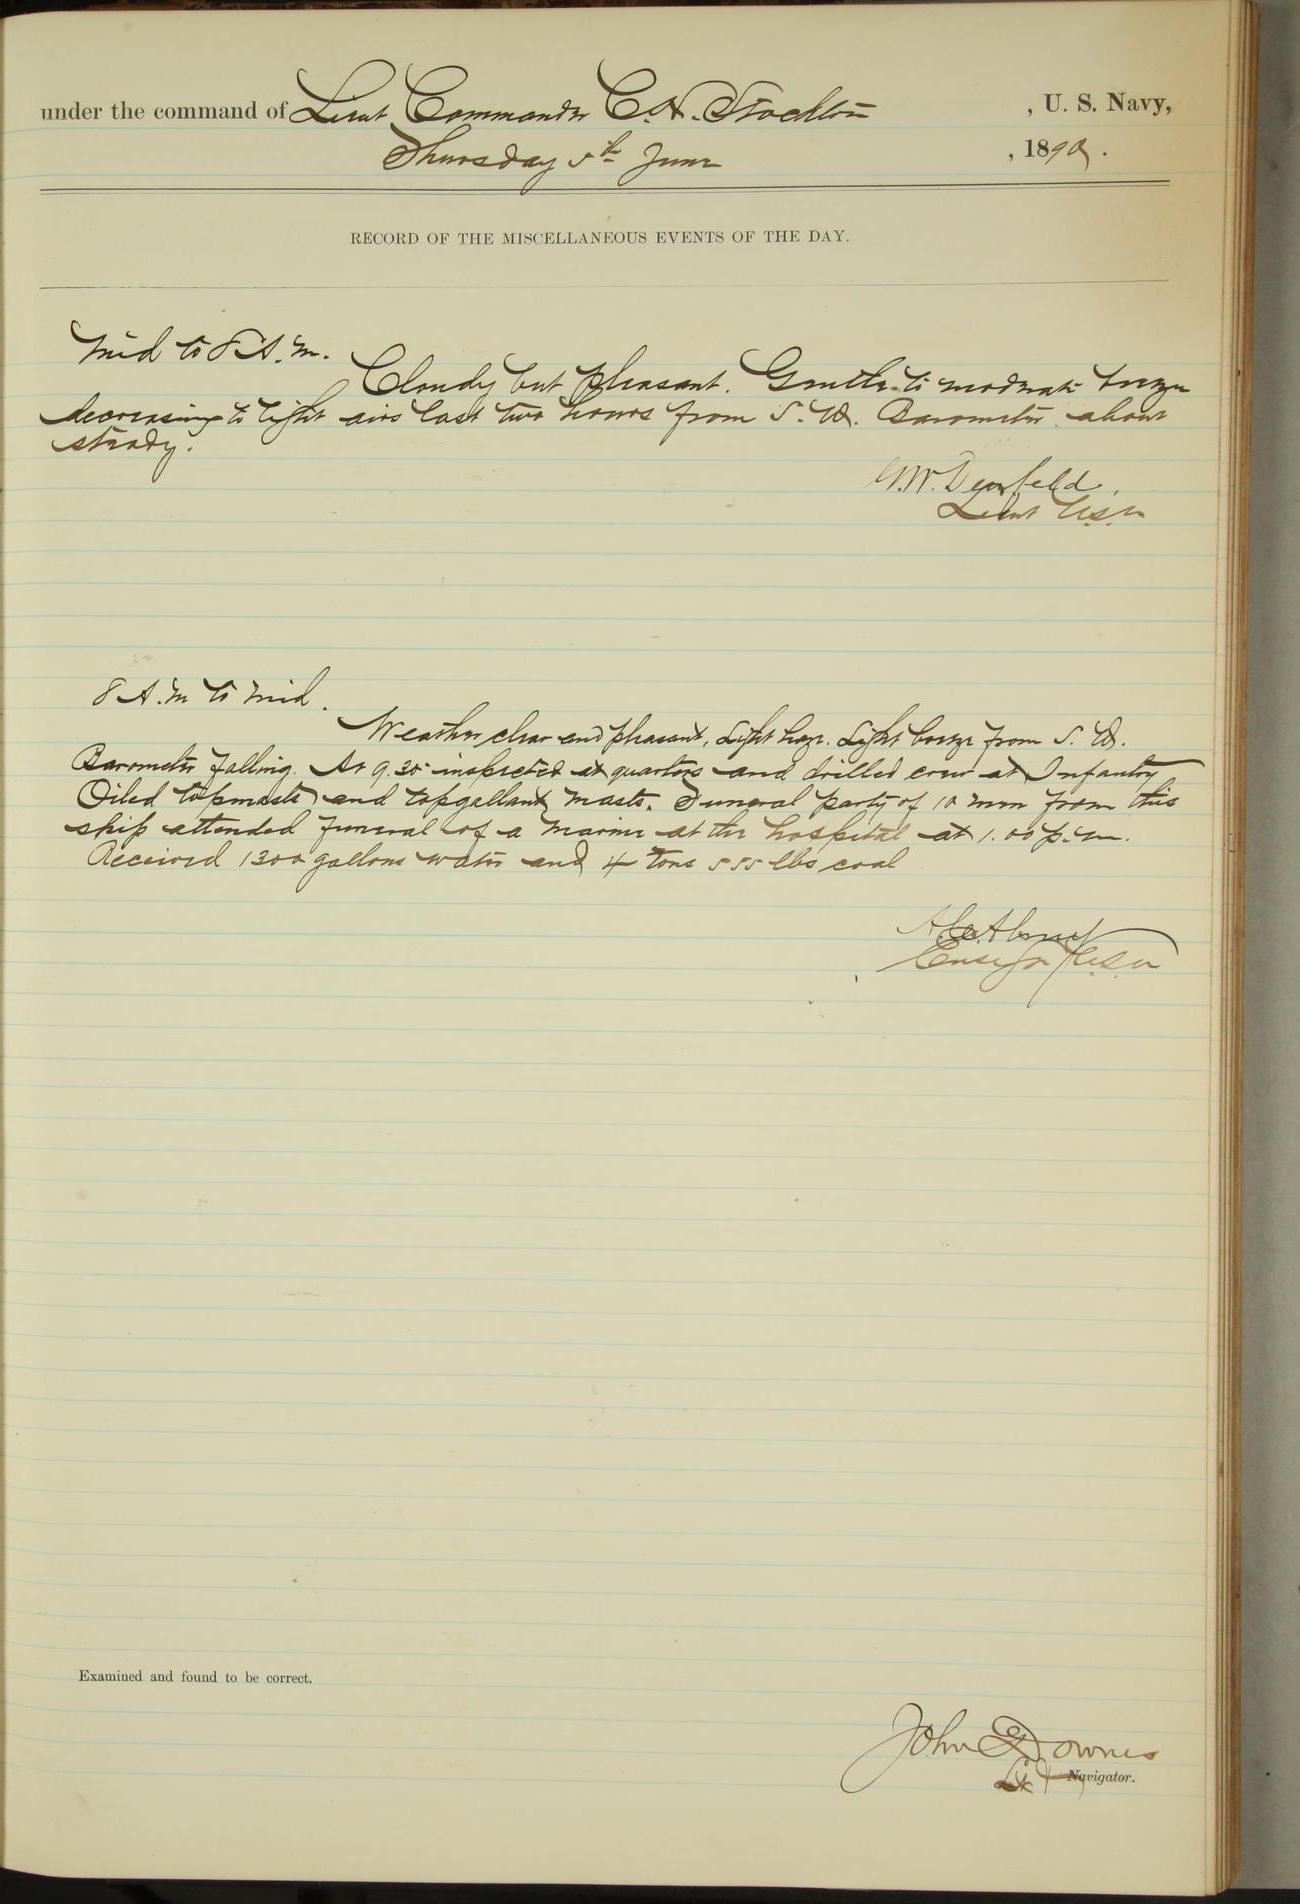 under the command of Lieut Commander C. H. Stockton, U. S. Navy,
Thursday 5th June, 1890.
RECORD OF THE MISCELLANEOUS EVENTS OF THE DAY.
Mid to 8 A.M.
Cloudy but pleasant. Gentle to moderate breeze
decreasing to light airs last two hours from S. W. Barometer about
steady.
G.W. Denfeld.
Lieut U.S.N
8 A.M to Mid.
Weather clear and pleasant, Light haze. Light breeze from S. W.
Barometer falling. At 9.30 inspected at quarters and drilled crew at Infantry
Oiled topmasts and topgallant masts. Funeral party of 10 men from this
ship attended funeral of a marine at the hospital at 1.00 p.m.
Received 1300 gallons water and 4 tons 555 lbs coal
Ensign U.S.N
Examined and found to be correct.
John Downes
Navigator.